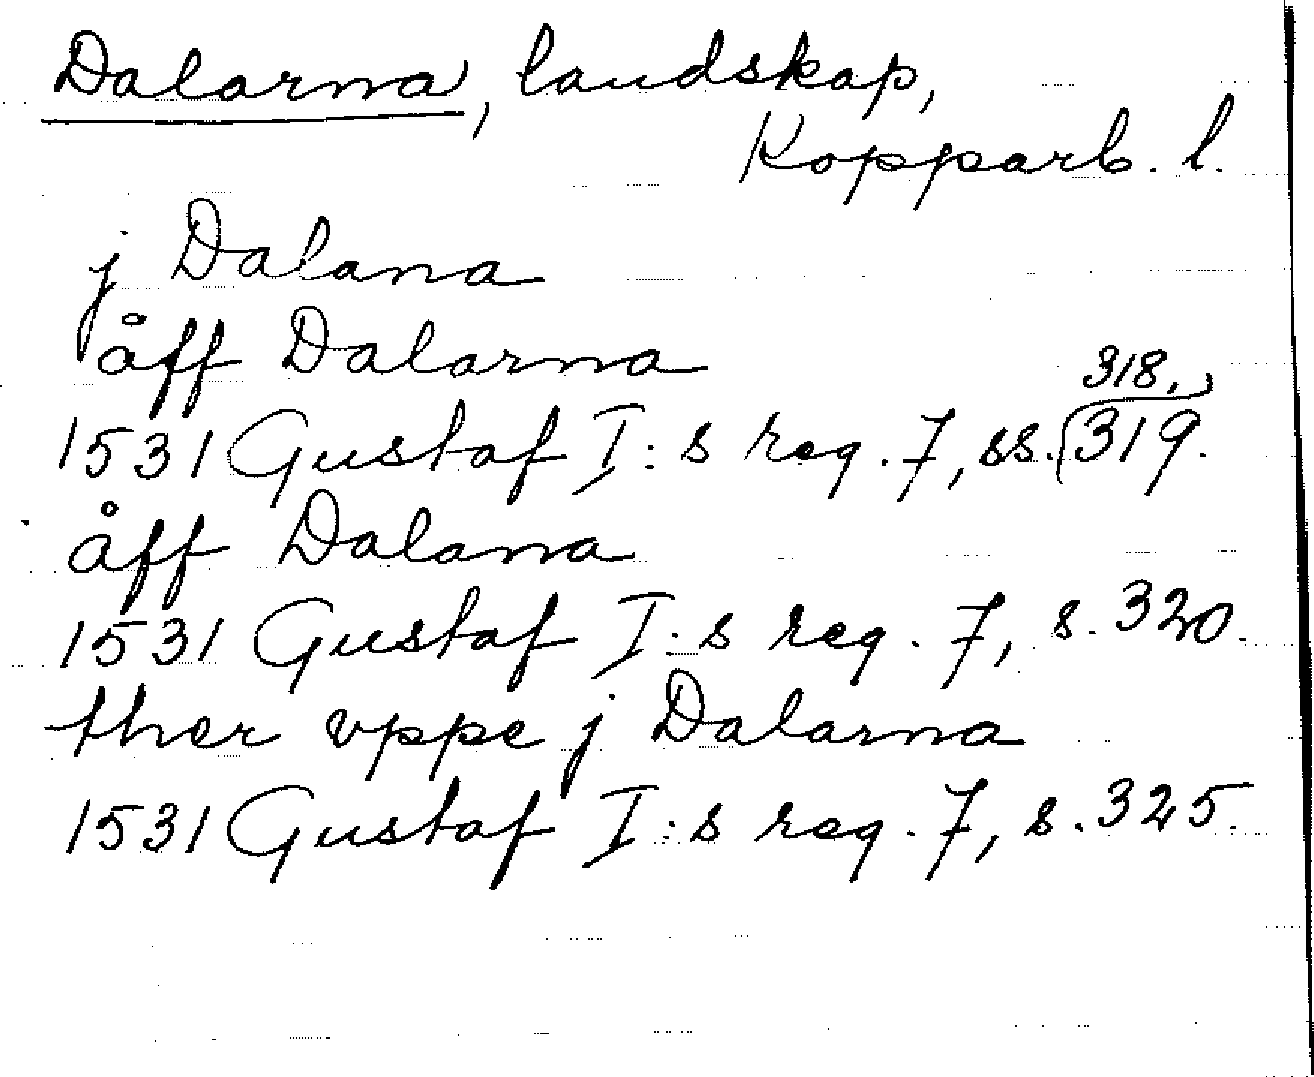 Dalarna, landskap,
Kopparb. l.
j Dalana
åff Dalarna
1531 Gustaf I:s reg. 7, ss. 318, 319.
åff Dalana
1531 Gustaf I:s reg. 7, s. 320.
ther vppe j Dalarna
1531 Gustaf I:s reg. 7, s. 325.